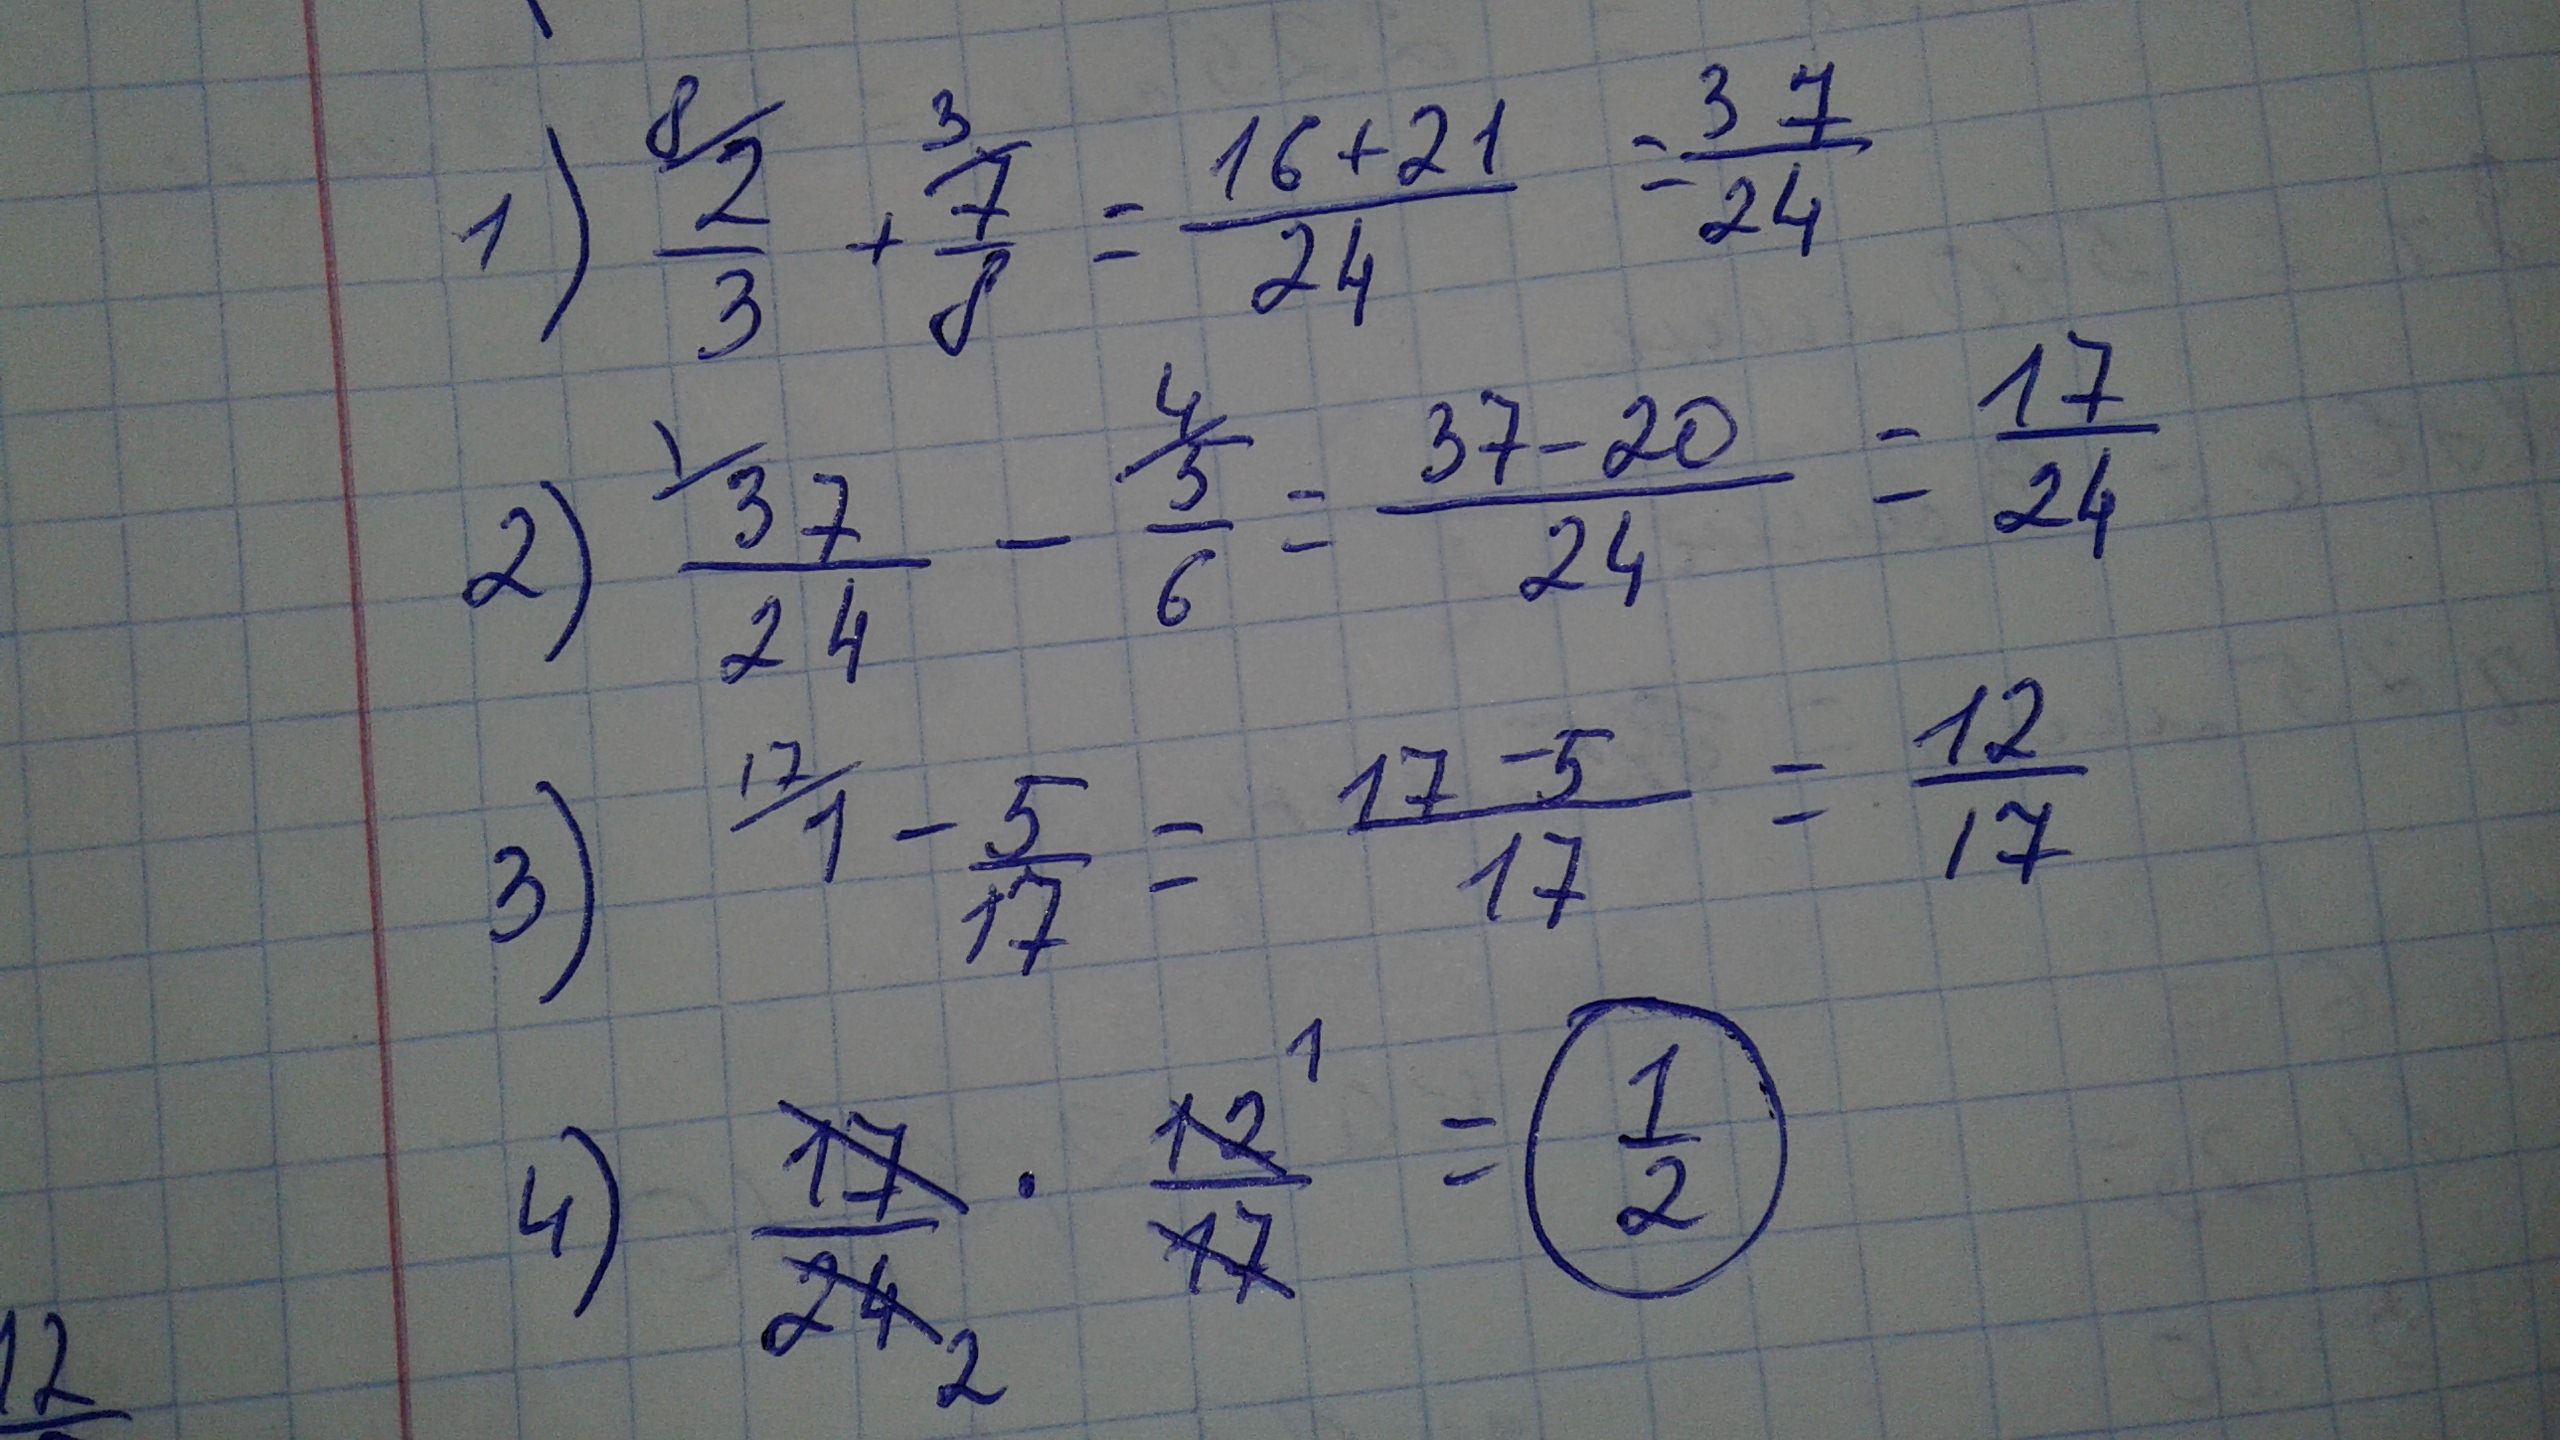 1) 8/ 2/3 + 3/ 7/8 = (16+21)/24 = 37/24
2) 1/ 37/24 - 4/ 5/6 = (37-20)/24 = 17/24
3) 17/ 1 - 5/17 = (17-5)/17 = 12/17
4) 17/24 2 · 12/17 1 = 1/2
12